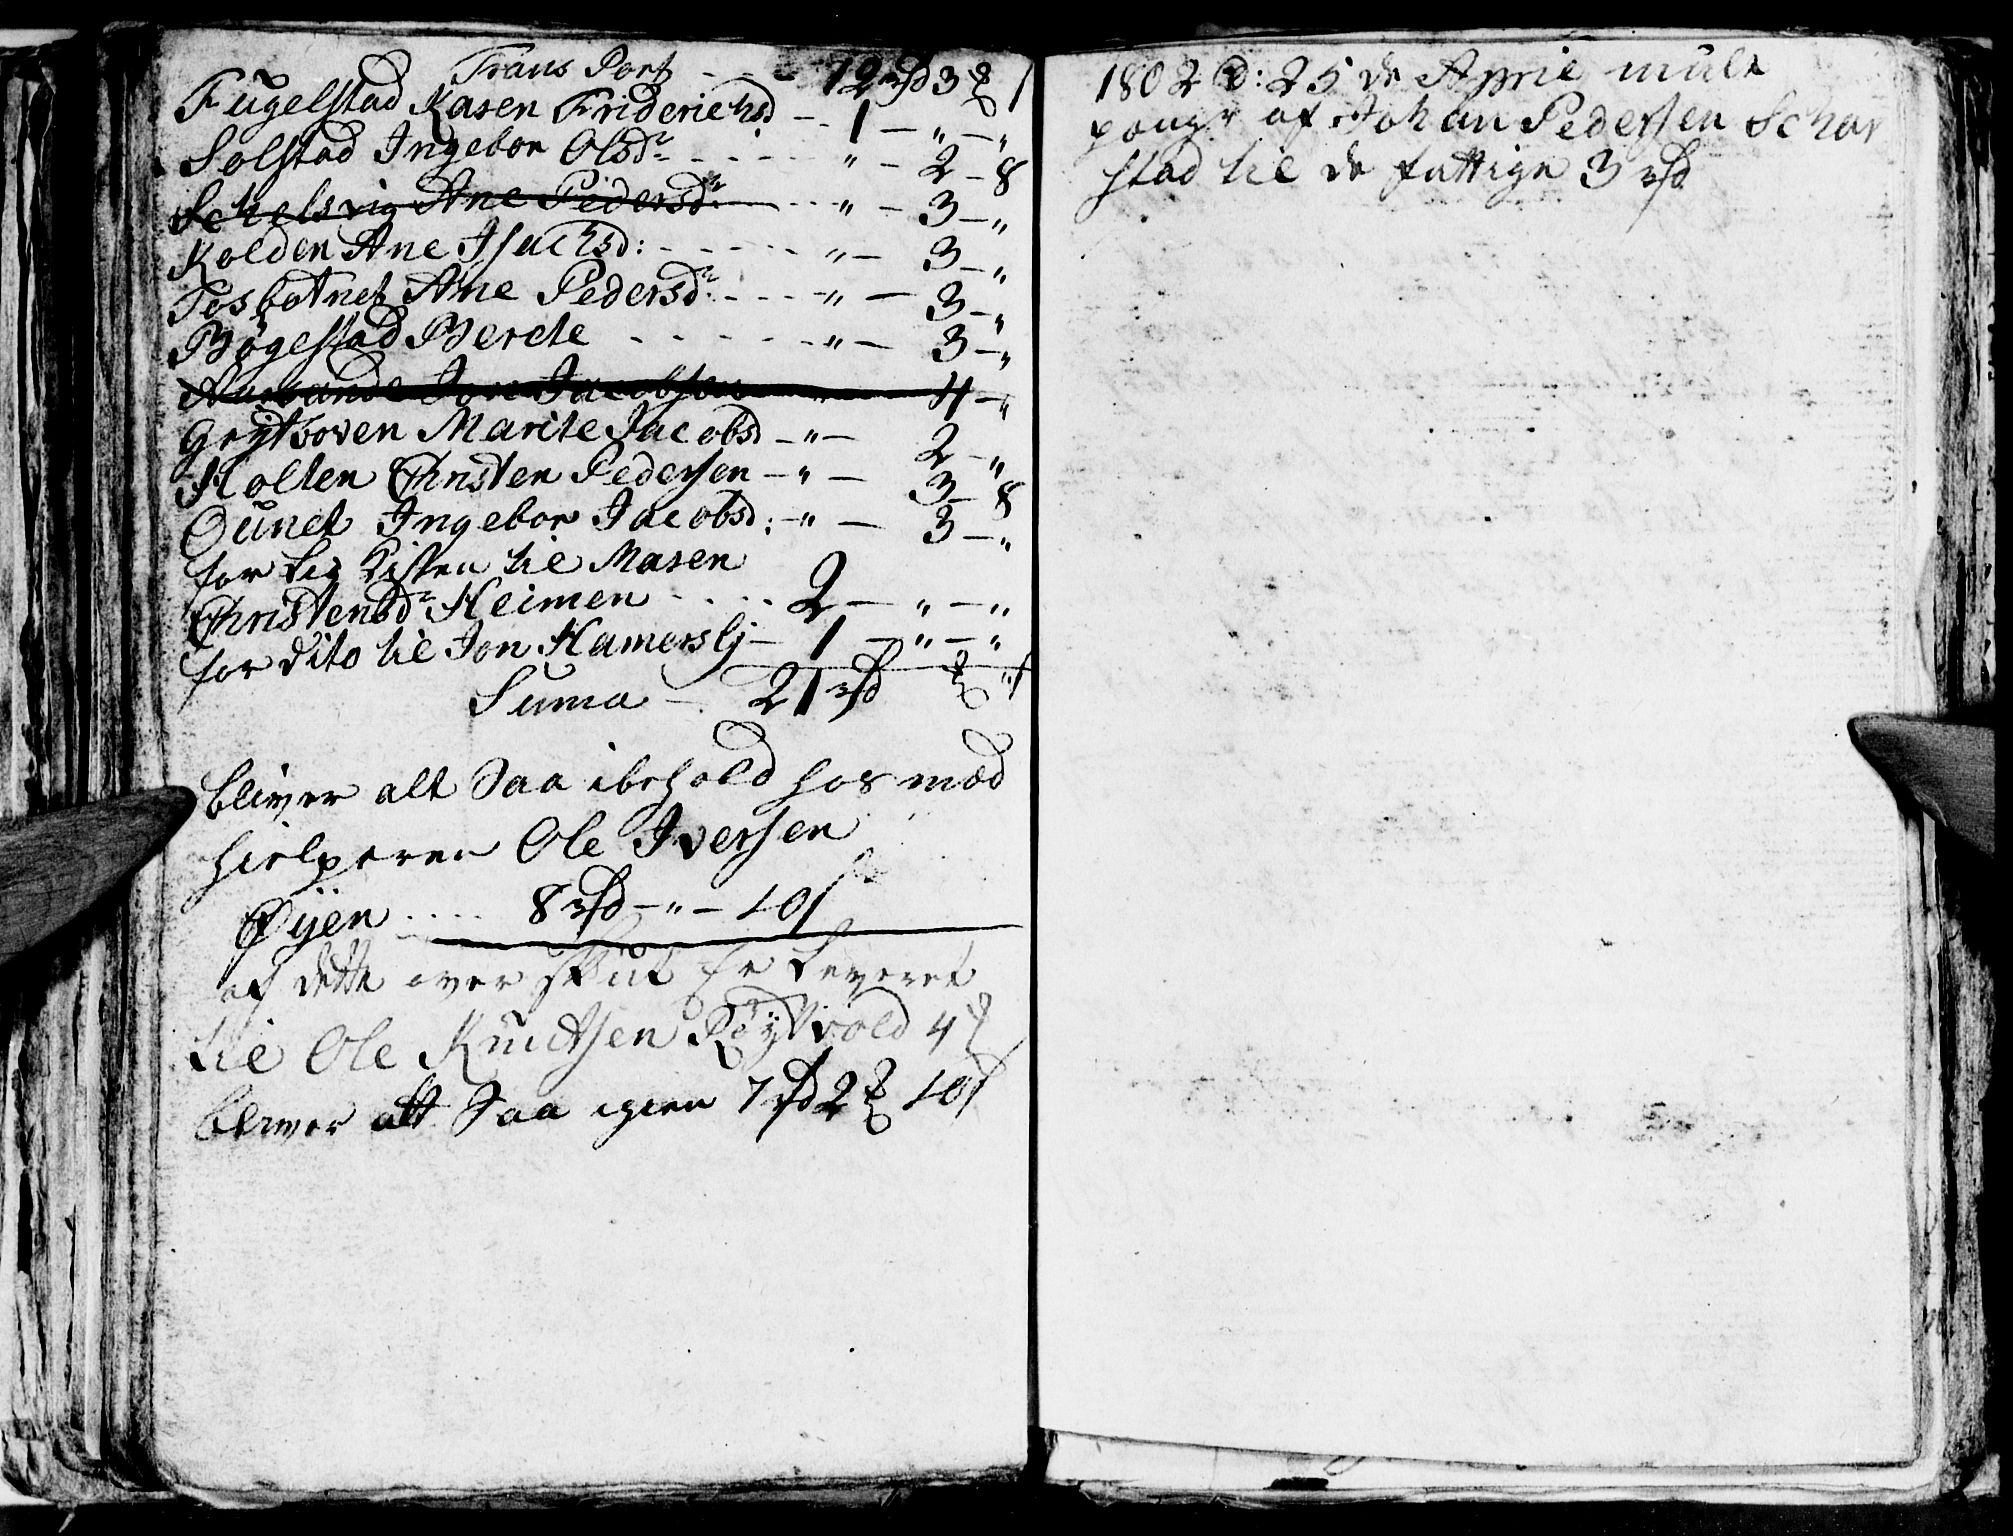 Trans Port - - - 12 rd 3 ꝑ "
Fugelstad Karen Friderichsd - - 1 - " - "
Solstad Ingebor Olsdr - - - - " - 2 - 8
Schelsvig Ane Pedersdr - - " - 3 - "
Kolden Ane Isachsd: - - - - - " - 3 - "
Tosbotnet Ane Pedersdr: - - - " - 3 - "
Bøgestad Berete - - - - - " - 3 - "
Jacobsen 4 - "
Grytsoven Marite Jacobsd - " - 2 - "
Holten Christen Pedersen - " - 3 - 8
Ounet Ingebor Jacobsd: - " - 3 - "
for Lig Kisten til Maren
Christensdr Heimen - - - - 2 - " - "
for dito til Jon Hamerslj - 1 - " - "
Suma - 21 rd
bliver alt Saa ibehold hos med
hielperen Ole Iversen
Øyen .... 8 rd - " - 10 s
af dette over skut er Leveret
til Ole Knudtsen Røytvold 4 ꝑ
bliver alt Saa igien 7 rd 2 ꝑ 10 s
1802 d: 25 de April mult
penge af Johan Pedersen Schar
stad til de fattige 3 rd